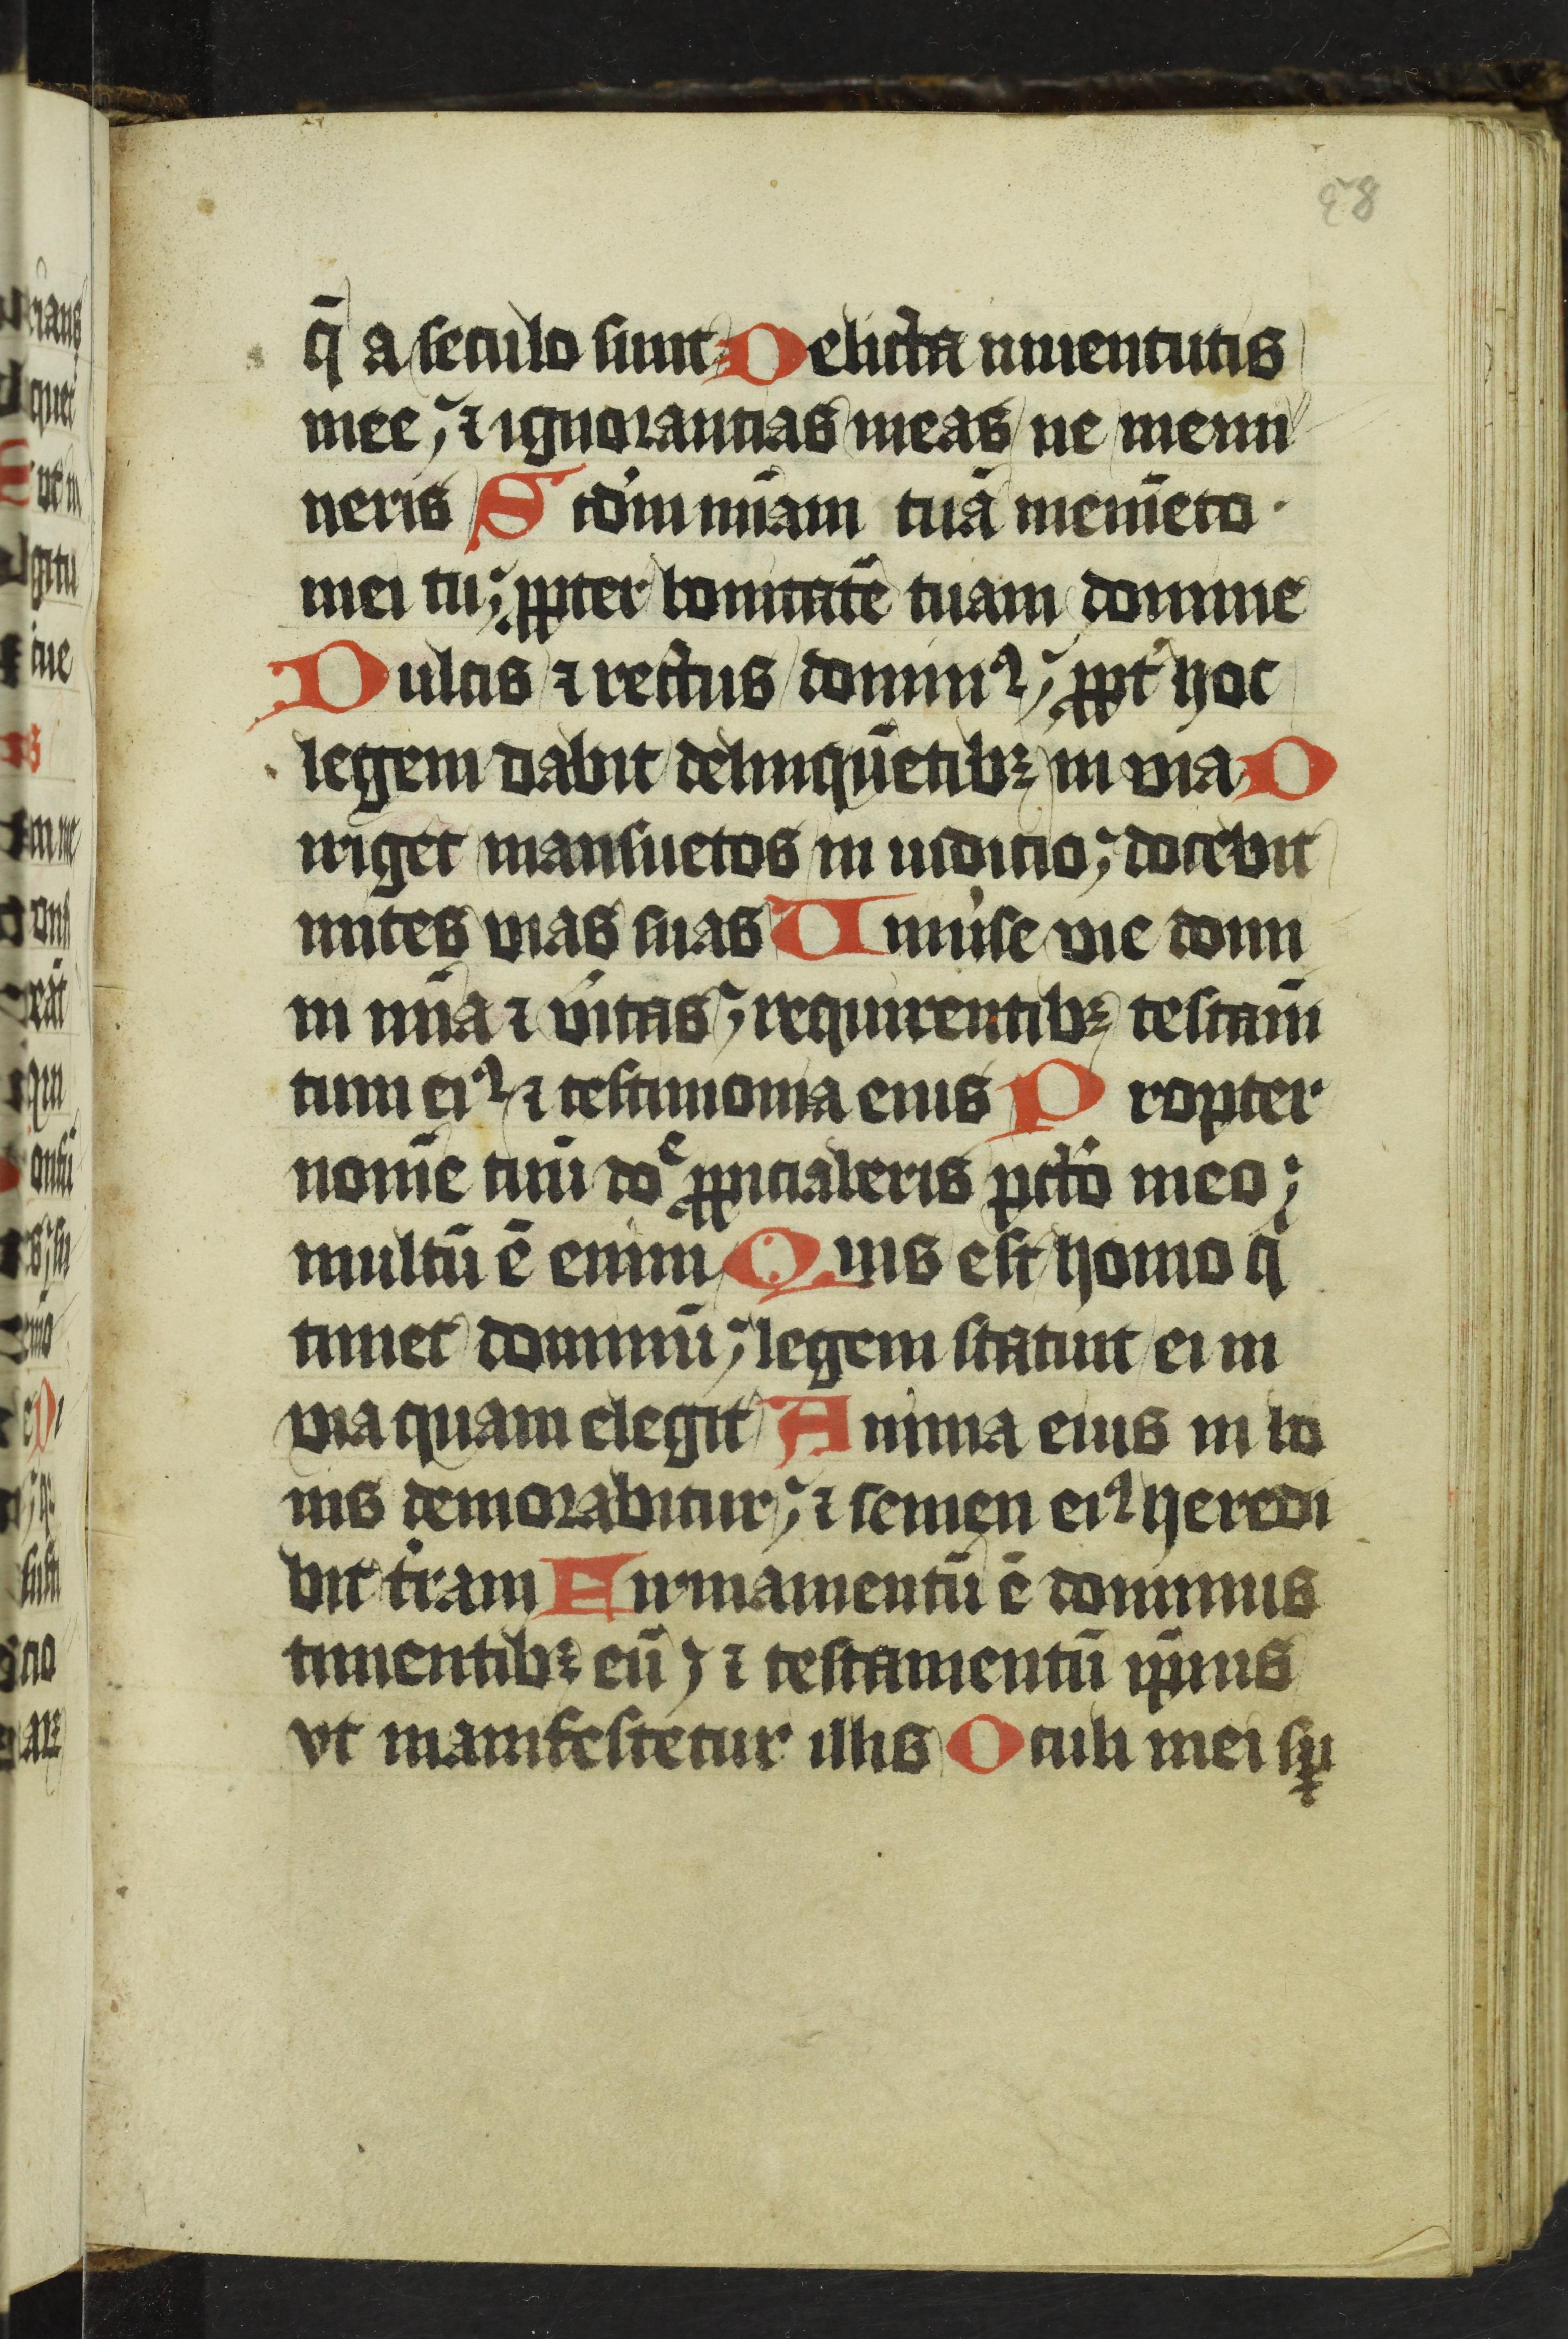 28
q̄ a seculo sunt Delicta iuuentutis
mee ; ⁊ ignorantias meas ne memi
neris Scd'm mīam tuā memēto ·
mei tu ; ꝓpter bonitatē tuam domine
Dulcis ⁊ rectus dominꝰ ; ꝓpt' hoc
legem dabit delinquētibꝫ in via D
iriget mansuetos in iudicio ; docebit
mites vias suas Uniu'se vie domi
ni mīa ⁊ v'itas ; requirentibꝫ testam̄
tum eiꝰ ⁊ testimonia eius Propter
nomē tuū doᵉ ꝓpiciaberis pctō meo ;
multū ē enim Quis est homo q̇
timet dominū ; legem statuit ei in
via quam elegit Anima eius in bo
nis demorabitur ; ⁊ semen eiꝰ heredi
bit t'ram Firmamentū ē dominus
timentibꝫ eū ; ⁊ testamentū ip̄ius
vt manifestetur illis Oculi mei sꝑ